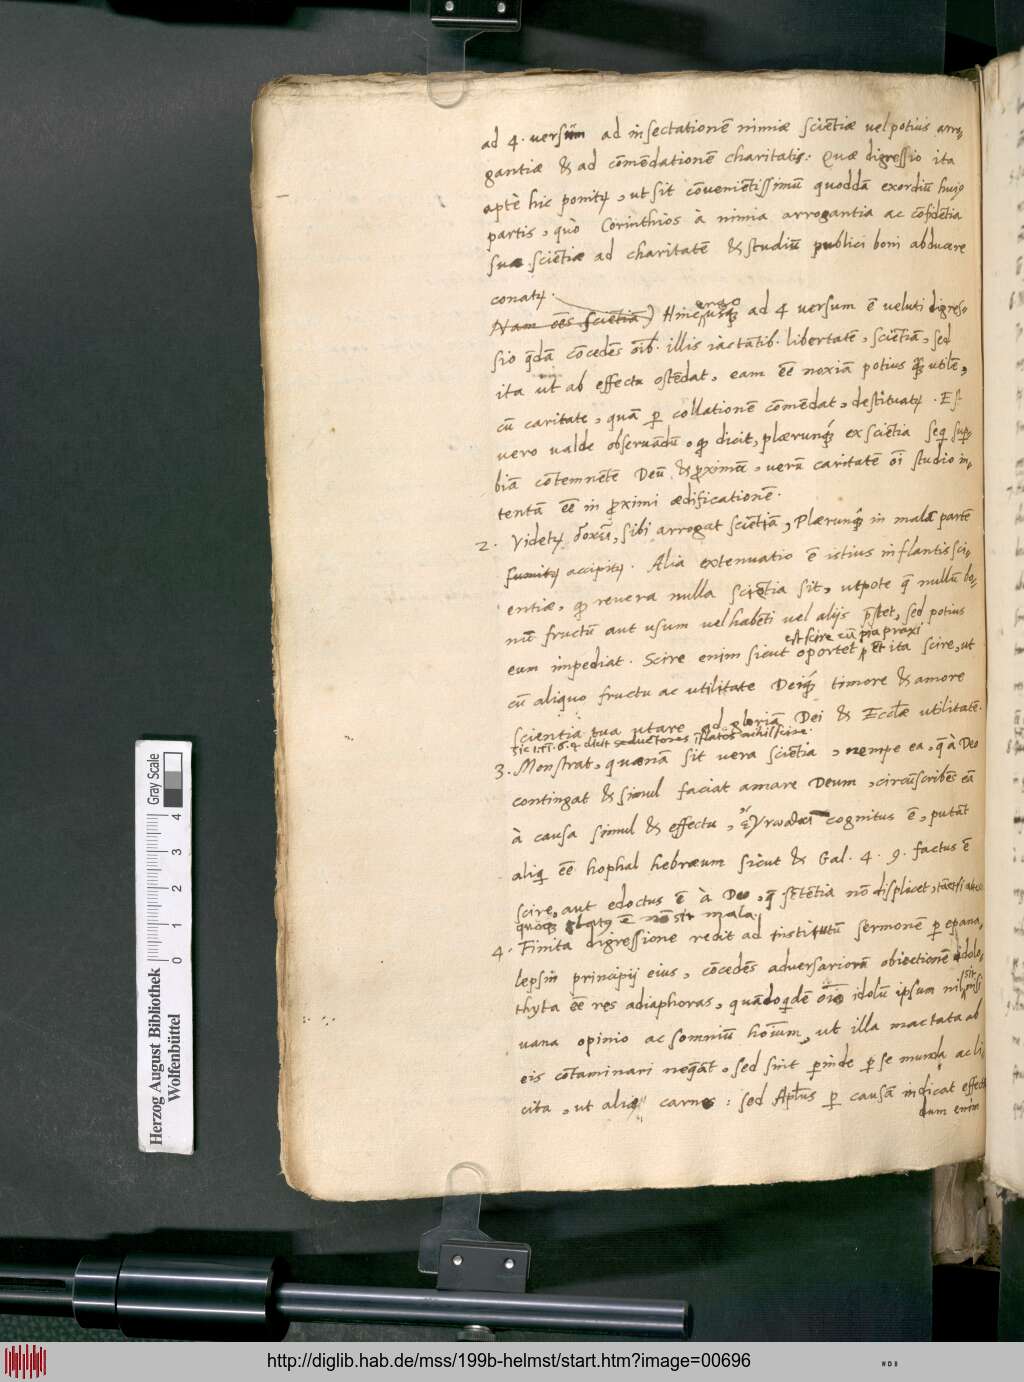 ad 4. versum ad insectationē nimiæ sciētiæ vel potius arro-
gantiæ & ad cōmēdationē charitatis: Quæ digressio ita
aptè hic ponitʳ, ut sit cōvenientissimū quoddā exordiū hujꝰ
partis, quò Corinthios à nimia arrogantia ac cōfidētia
suæ sciētiæ ad charitatē & studiū publici boni abducere
conatʳ.
Nam oēs sciētiā) Hinc ergo usqꝫ ad 4 versum ē veluti digres-
sio q̄dā cōcedēs oīb. illis iactātib. libertatē, sciētiā, sed
ita ut ab effectu ostēdat, eam eē noxiā potius quā utilē,
cū caritate, quā ꝑ collationē cōmēdat, destituatʳ. Est
vero valde observādū, qꝫ dicit, plærunqꝫ ex sciētia seqi sup̱-
biā contemnētē Deū & proximū, verā caritatē oī studio in-
tentā eē in proximi ædificationē.
2. Videtʳ δοκεῖ, sibi arrogat sciētiā, Plærunqꝫ in malā partē
sumitʳ accipitʳ. Alia extenuatio ē istius inflantis sci-
entiæ, qꝫ revera nulla scientia sit, utpote q̄ nullū bo-
nū fructū aut usum vel habēti vel alijs p̄stet, sed potius
eum impediat. Scire enim sicut oportet est scire cū pia praxi et ita scire, ut
cū aliquo fructu ac utilitate Deiqꝫ timore & amore
scientia tua utare ad gloriā Dei & Eccl̄æ utilitatē.
sic 1. Ti. 6. 4 dicit seductores īflatos nihil scire.
3. Monstrat, quænā sit vera sciētia, nempe ea, q̄ à Deo
contingat & simul faciat amare Deum, circūscribēs eā
à causa simul & effectu, ἔγνωσται cognitus ē, putāt
aliqi eē hophal hebræum sicut & Gal. 4. 9. factus ē
scire, aut edoctus ē à Deo, q̄ sētētia nō displicet,
quoqꝫ nō sit mala.
4. Finita digressione redit ad institutū sermonē ꝑ epana-
lepsin principij eius, cōcedēs adversariorū obiectionē idolo-
thyta eē res adiaphoras, quādoqidē oīo idolū ipsum nil sit nisi
vana opinio ac somniū hoīum, ut illa mactata ab
eis cōtaminari neqeāt, sed sint ꝑinde ꝑ se munda ac li-
cita, ut aliæ carnes: sed Apl̄us ꝑ causā indicat effectū
dum enim
Herzog August Bibliothek
Wolfenbüttel
0 1 2 3 4
Gray Scale
http://diglib.hab.de/mss/199b-helmst/start.htm?image=00696
WDB